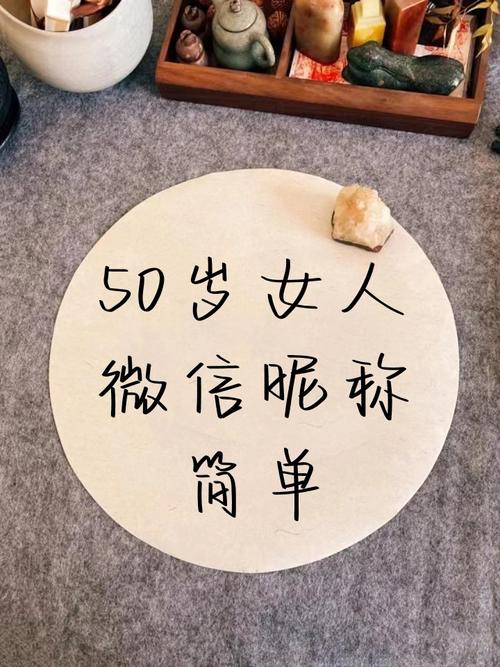 50岁女人
微信昵称
简单